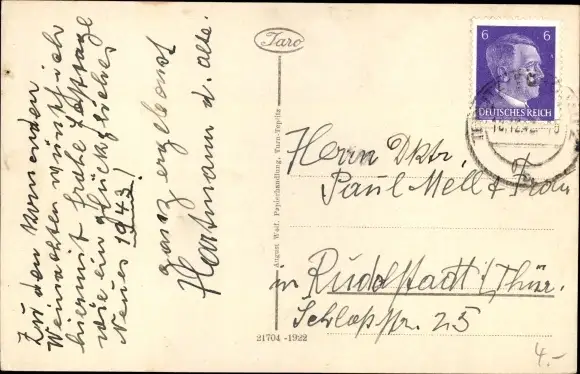 Zu den kommenden
Weihnachten wünsch ich
hiermit frohe Festtage
wie ein glückliches
Neues 1943!
ganz ergebenst
Hartmann u. Alte.
Taro
August Watt, Papierhandlung, Turn-Teplitz
21704 -1922
6 6
DEUTSCHES REICH
Herrn Dktr.
Paul Mell & Frau
in Rudolstadt i/Thür.
Schloßstr. 25
4.-